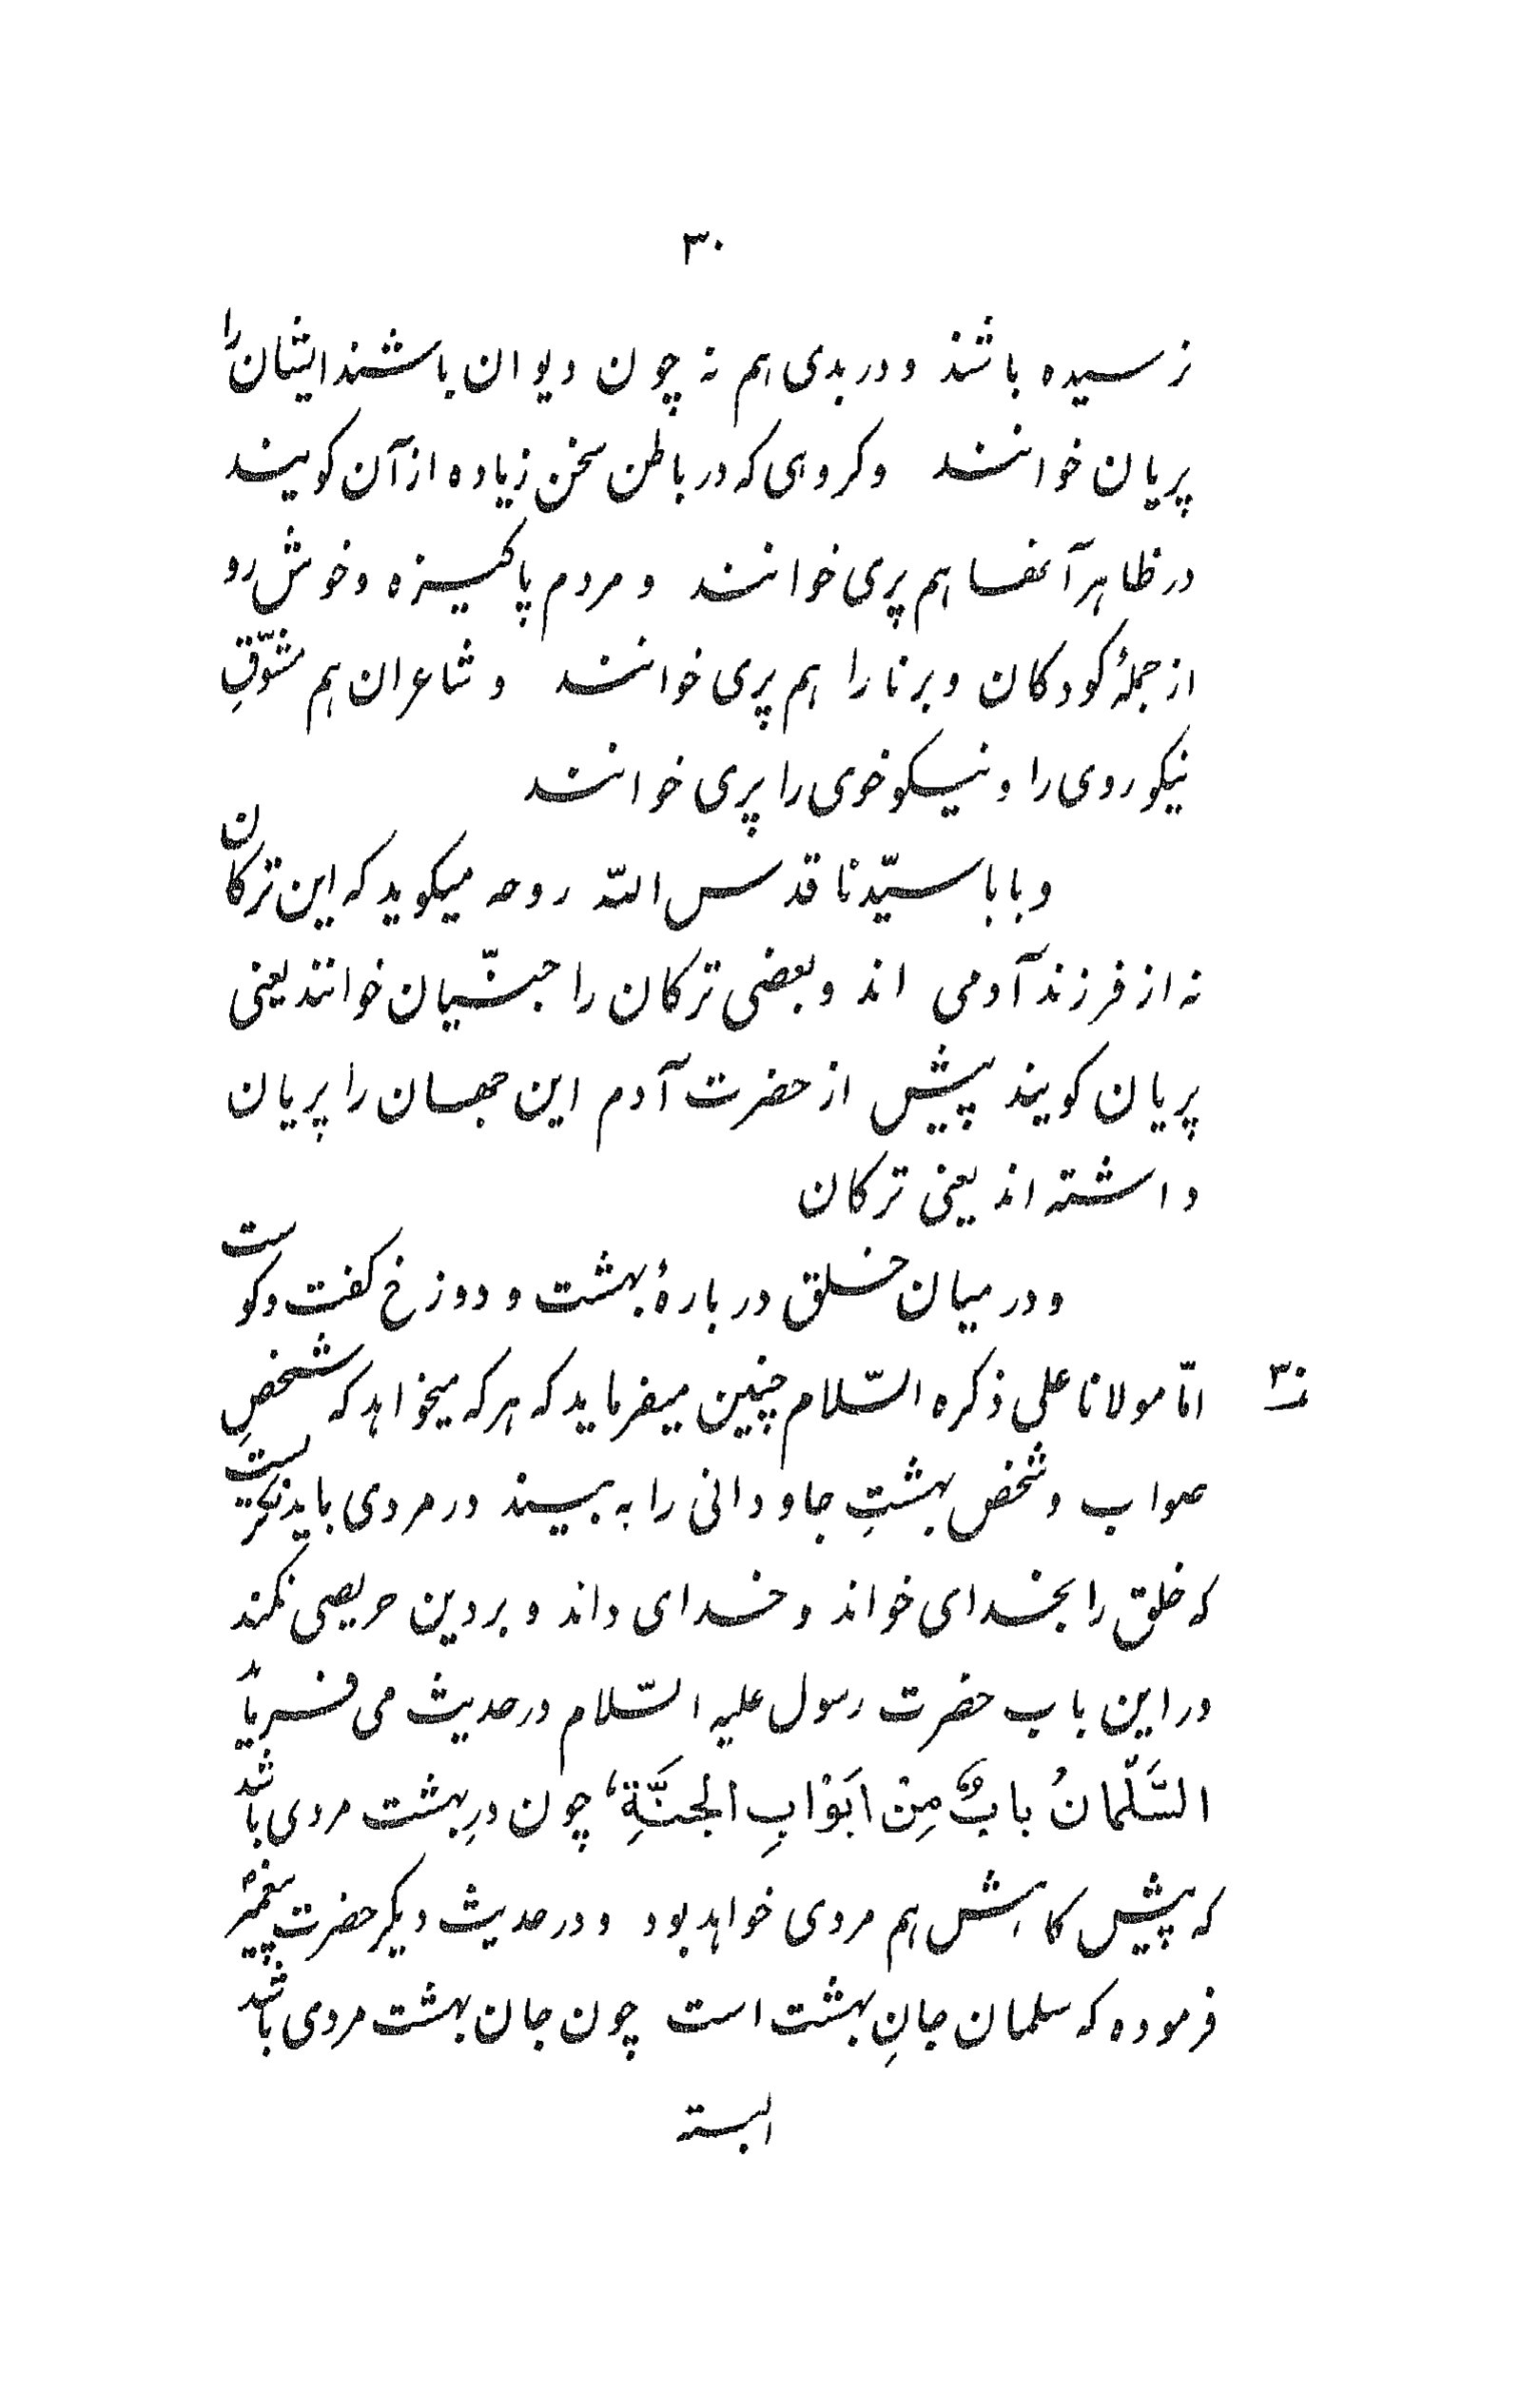 ۳۰
نرسیده باشند و در بدی هم نه چون دیوان باشند ایشان را
پریان خوانند وکروهی که در باطن سخن زیاده از آن کویند
در ظاهر آنها هم پری خوانند و مردم پاکیزه و خوش رو
از جملهٔ کودکان و برنا را هم پری خوانند و شاعران هم مشوّقِ
نیکو روی را و نیکو خوی را پری خوانند
و بابا سیّدنا قدس اللّه روحه میکوید که این ترکان
نه از فرزند آدمی اند و بعضی ترکان را جنّیان خوانند یعنی
پریان کویند پیش از حضرت آدم این جهان را پریان
داشته اند یعنی ترکان
و در میان خلق در بارهٔ بهشت و دوزخ کفت و کوست
امّا مولانا علی ذکره السّلام چنین میفرماید که هر که میخواهد که شخصِ
صواب و شخص بهشتِ جاودانی را به بیند در مردی باید نکریست
که خلق را بخدای خواند و خدای داند و بر دین حریصی نکند
در این باب حضرت رسول علیه السّلام در حدیث می فرماید
السَّلْمانُ بابٌ مِنْ اَبَوْابِ الْجَنَّةِ، چون درِ بهشت مردی باشد
که پیش کاهش هم مردی خواهد بود و در حدیث دیکر حضرت پیغمبر
فرموده که سلمان جانِ بهشت است چون جان بهشت مردی باشد
البته